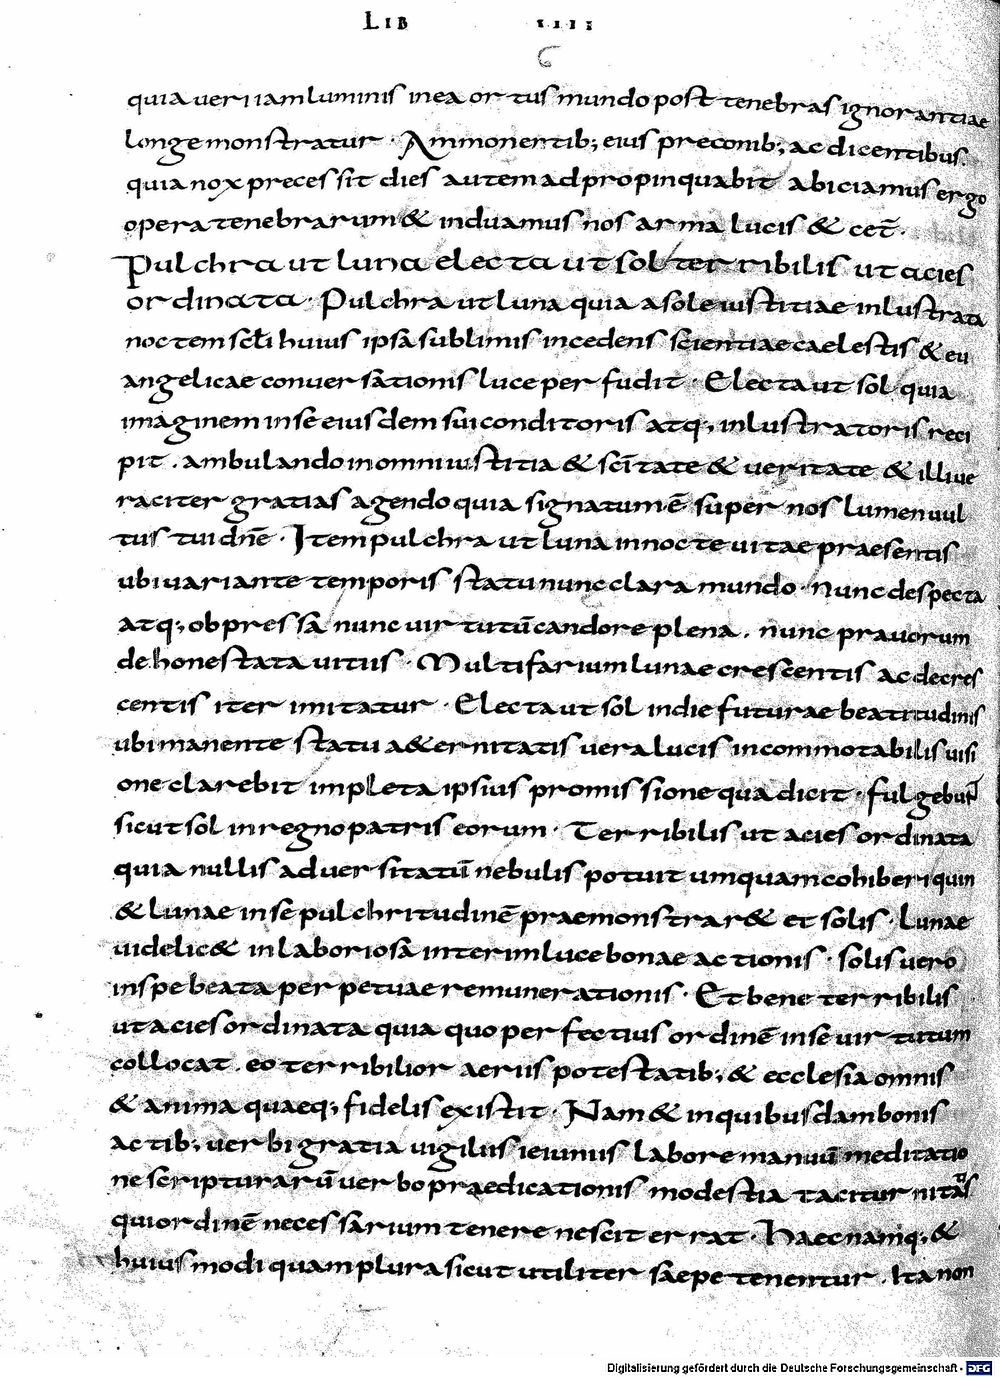 LIB IIII
6
quia ueri iam luminis in ea ortus mundo post tenebras ignorantiae
longe monstratur · Ammonentib; eius preconib; ac dicentibus.
quia nox precessit dies autem adpropinquabit abiciamus ergo
opera tenebrarum & induamus nos arma lucis & cet̄ .
Pulchra ut luna electa ut sol terribilis ut acies
ordinata · Pulchra ut luna quia a sole iustitiae inlustrata
noctem scł̄i huius ipsa sublimis incedens scientiae caelestis & eu
angelicae conuersationis luce perfudit · Electa ut sol quia
imaginem in se eiusdem sui conditoris atq; inlustratoris reci
pit . ambulando in omni iustitia & sc̄itate & ueritate & illi ue
raciter gratias agendo quia signatum ē super nos lumen uul
tus tui dn̄e · Item pulchra ut luna in nocte uitae praesentis
ubi uariante temporis statu nunc clara mundo · nunc despecta
atq; obpressa nunc uirtutū candore plena . nunc prauorum
dehonestata uitiis · Multifarium lunae crescentis ac decres
centis iter imitatur · Electa ut sol in die futurae beatitudinis
ubi manente statu a&ernitatis uera lucis incommotabilis uisi
one clarebit impleta ipsius promissione qua dicit · fulgebuɴ̄t
sicut sol in regno patris eorum · Terribilis ut acies ordinata
quia nullis aduersitatū nebulis potuit umquam cohiberi quin
& lunae in se pulchritudinē praemonstrar& et solis · Lunae
uidelic& in laboriosa interim luce bonae actionis · solis uero
in spe beata perpetuae remunerationis · Et bene terribilis
ut acies ordinata quia quo perfectius ordinē in se uirtutum
collocat . eo terribilior aeriis potestatib; & ecclesia omnis
& anima quaeq; fidelis existit · Nam & in quibusdam bonis
actib; uerbi gratia uigiliis ieiuniis labore manuū meditatio
ne scripturarū uerbo praedicationis modestia taciturnitas
qui ordinē necessarium tenere nescit errat · Haec namq; &
huiusmodi quam plura sicut utiliter saepe tenentur . Ita non
Digitalisierung gefördert durch die Deutsche Forschungsgemeinschaft - DFG